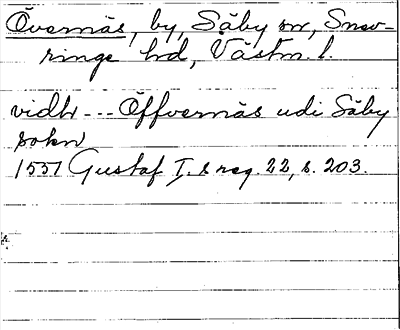 Övernäs, by, Säby sn, Snev-
ringe hd, Västm. l.
vidh --- Öffvernäs udi Säby
sokn
1551 Gustaf I. s reg. 22, s. 203.